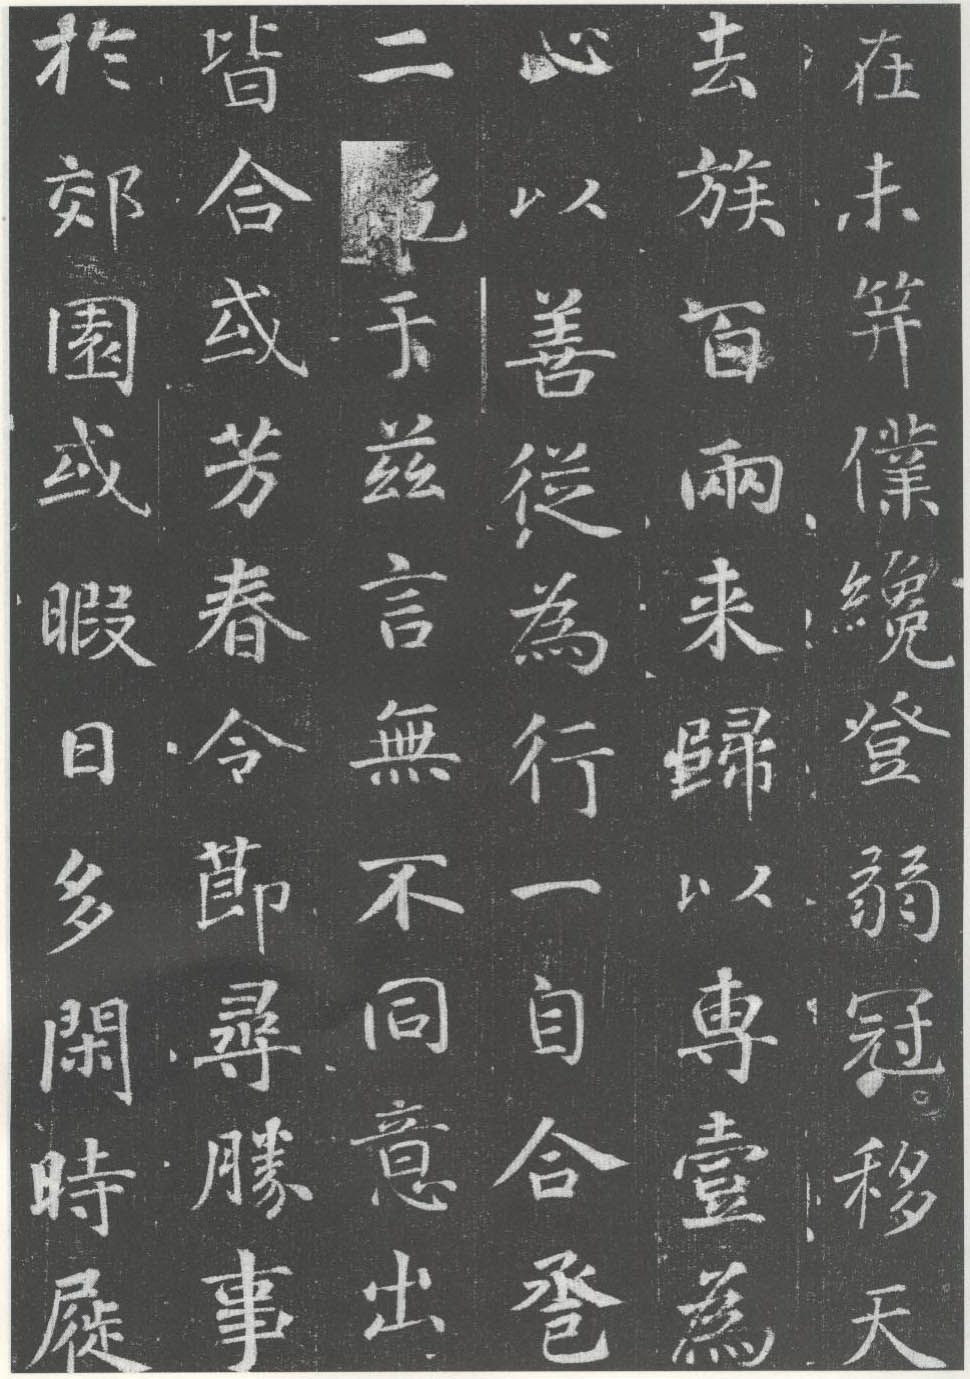 在未笄僕纔登弱冠移天
去族百兩来歸以專壹為
心以善從為行一自合卺
二于兹言無不同意出
皆合或芳春令節尋勝事
於郊園或暇日多閑時屣